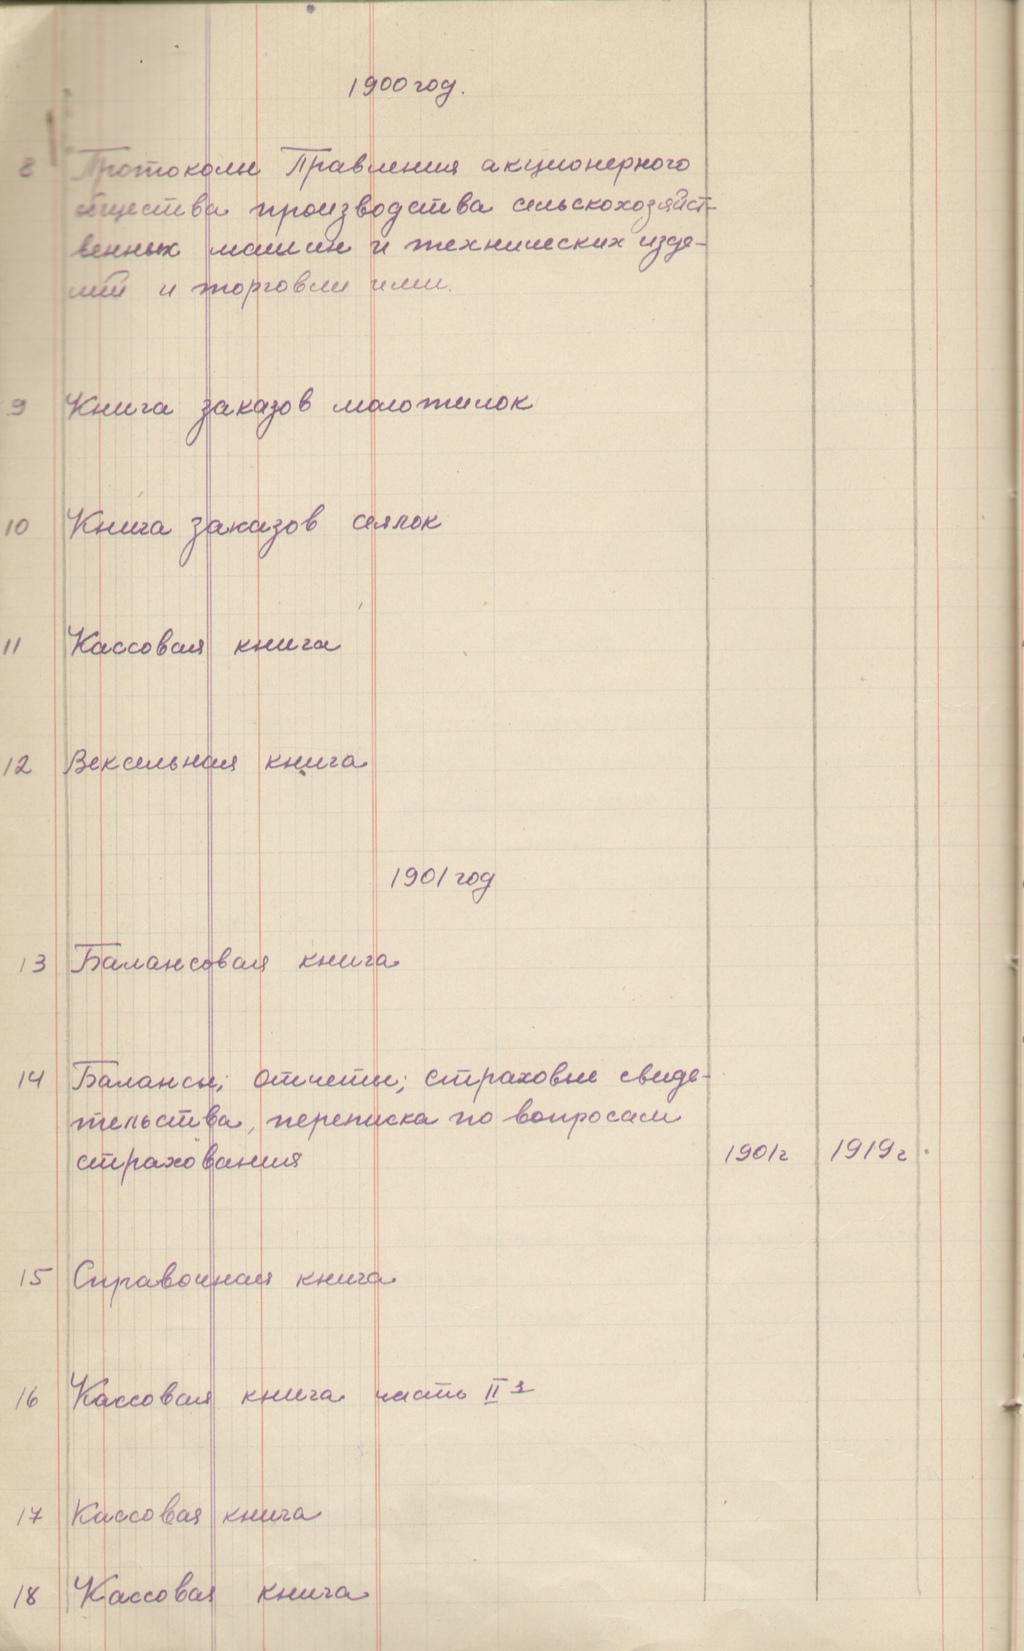 1900 год.
8 Протоколы Правления акционерного
общества производства сельскохозяйст-
венных машин и технических изде-
лий и торговли ими.
9 Книга заказов молотилок
10 Книга заказов сеялок
11 Кассовая книга
12 Вексельная книга
1901 год
13 Балансовая книга
14 Балансы; отчеты; страховые свиде-
тельства, переписка по вопросам
страхования 1901г 1919г.
15 Справочная книга
16 Кассовая книга часть II я
17 Кассовая книга
18 Кассовая книга